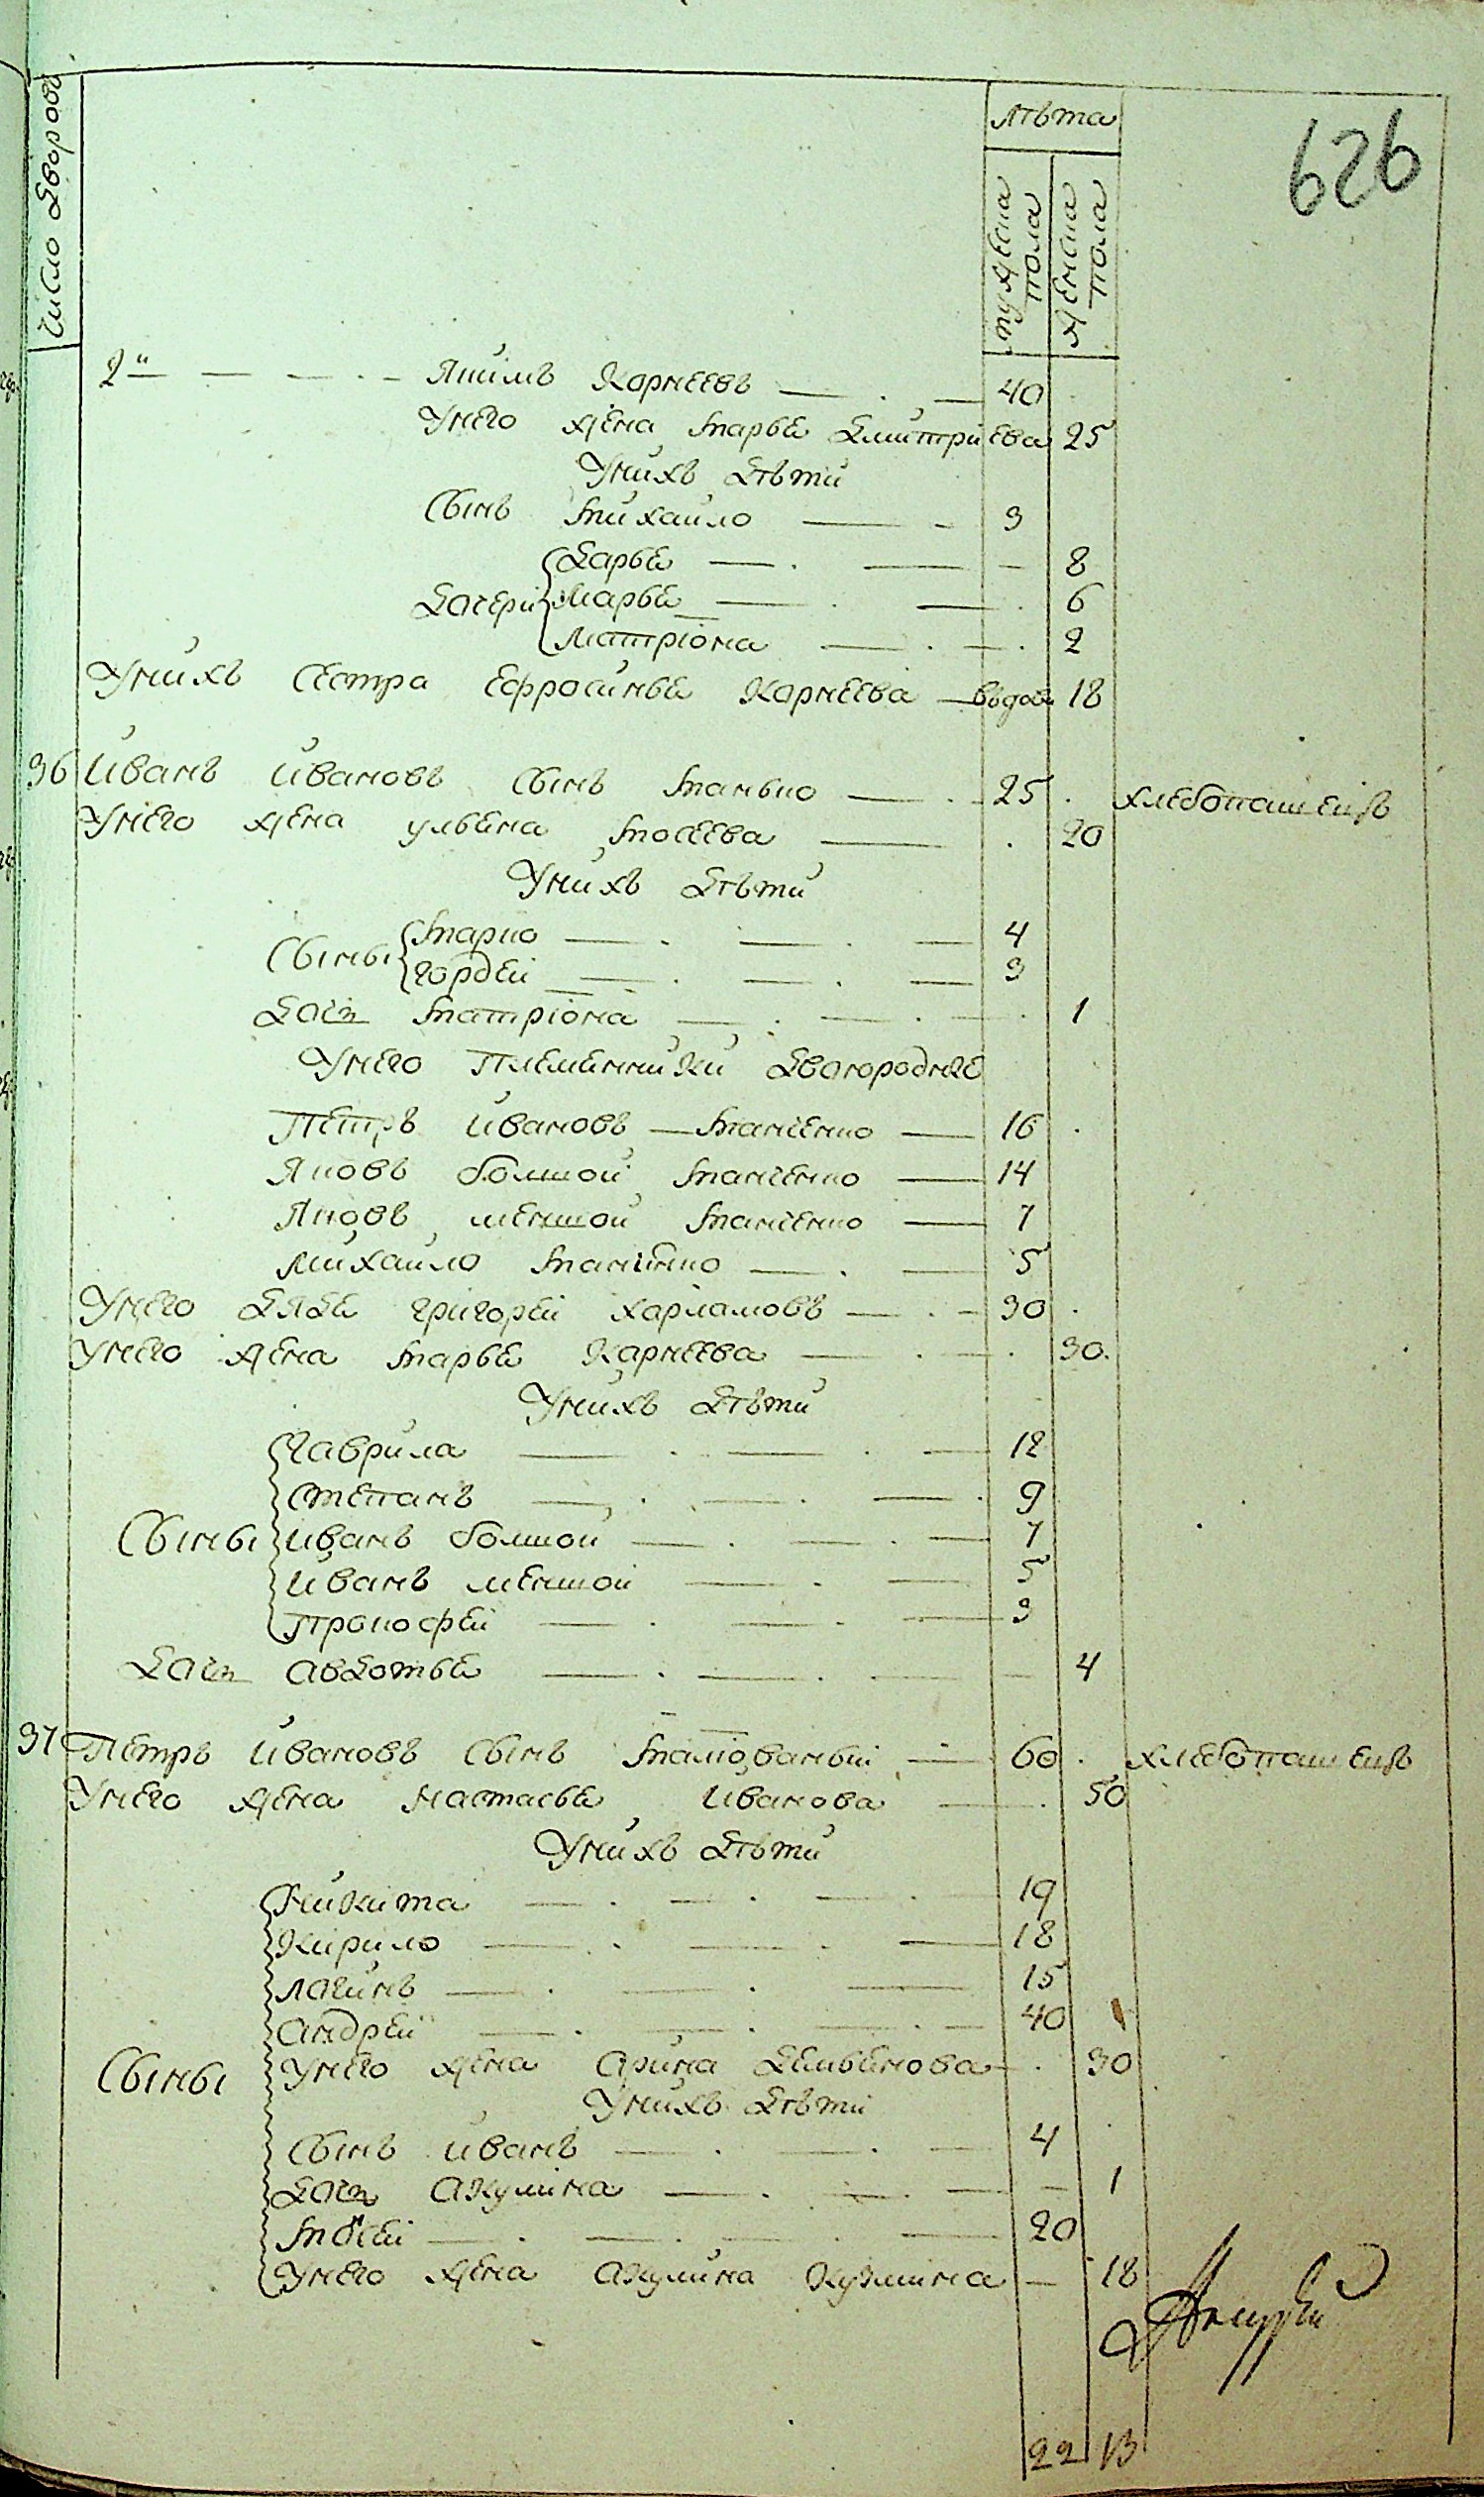 626
Число дворовъ
лѣта
мужеска пола
женска пола
2й Якимъ Корнеевъ 40
У него жена Марья Дмитриева 25
У нихъ дѣти
Сынъ Михайло 3
Дочери Дарья 8
Марья 6
Матріона 2
У нихъ сестра Ефросинья Корнеева вдова 18
36 Иванъ Ивановъ сынъ Манько 25 хлебопашецъ
У него жена Ульяна Мосеева 20
У нихъ дѣти
Сыны Марко 4
Гордей 3
Дочь Матріона 1
У него племянники двоюродные
Петръ Ивановъ Манченко 16
Яковъ болшой Манченко 14
Яковъ меншой Манченко 7
Михайло Манченко 5
У него дядя Григорей Харламовъ 30
У него жена Марья Корнеева 30
У нихъ дѣти
Гаврила 12
Степанъ 9
Сыны Иванъ болшой 7
Иванъ меншой 5
Прокофей 3
Дочь Авдотья 4
37 Петръ Ивановъ сынъ Малiованый 60 хлебопашецъ
У него жена Настасья Иванова 50
У нихъ дѣти
Никита 19
Кирило 18
Логинъ 15
Андрей 40
Сыны У него жена Арина Демьянова 30
У нихъ дѣти
Сынъ Иванъ 4
Дочь Акулина 1
Мосей 20
У него жена Акулина Кузмина 18
22 13